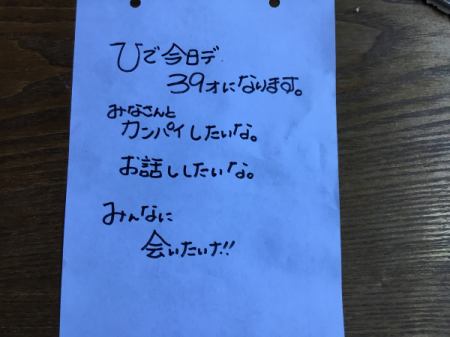 ひで今日デ
39才になります。
みなさんと
カンパイしたいな。
お話ししたいな。
みんなに
会いたいナ!!